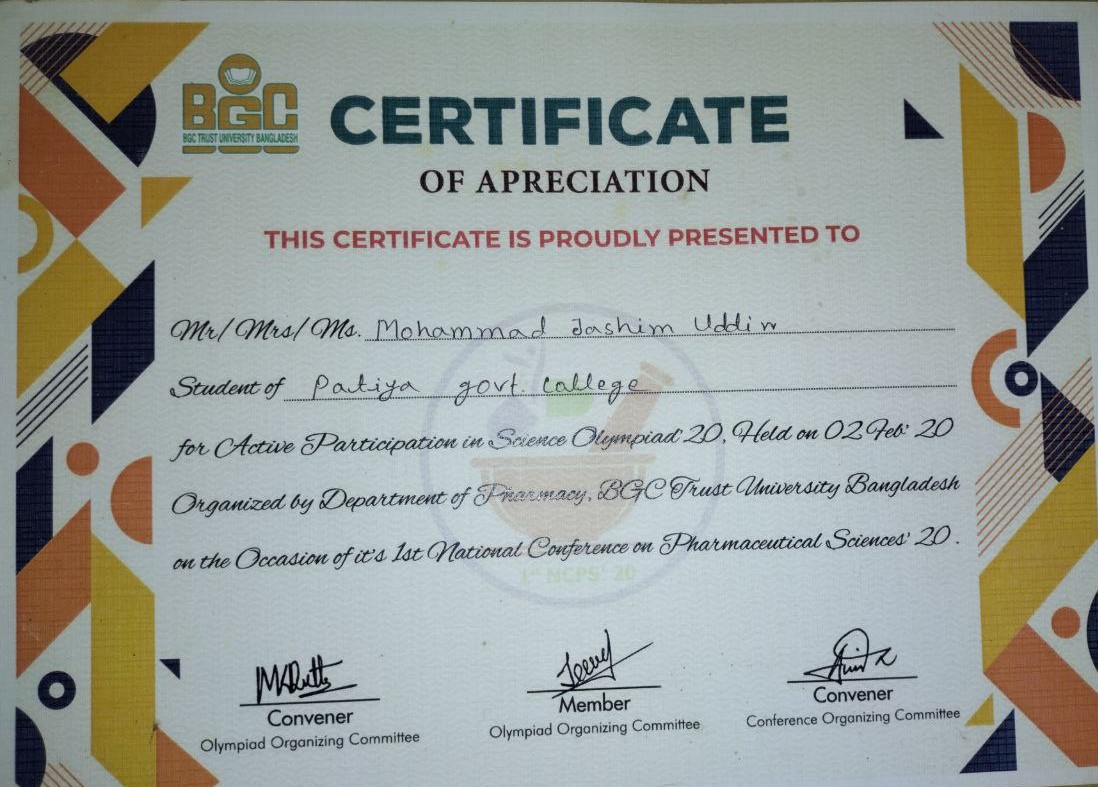 BGC
BGC TRUST UNIVERSITY BANGLADESH
CERTIFICATE
OF APRECIATION
THIS CERTIFICATE IS PROUDLY PRESENTED TO
Mr/ Mrs/ Ms. Mohammad Jashim Uddin
Student of Patiya govt. College
for Active Participation in Science Olympiad' 20, Held on 02 Feb' 20
Organized by Department of Pharmacy, BGC Trust University Bangladesh
on the Occasion of it's 1st National Conference on Pharmaceutical Sciences' 20.
1st NCPS' 20
Convener
Olympiad Organizing Committee
Member
Olympiad Organizing Committee
Convener
Conference Organizing Committee